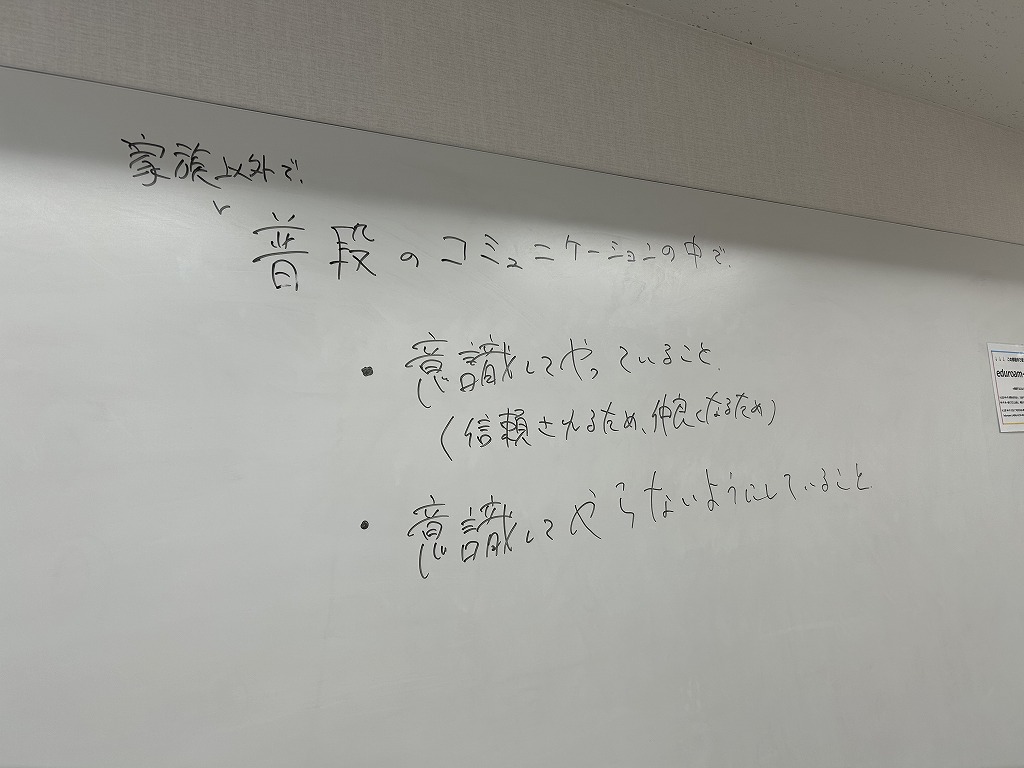 家族以外で、
普段のコミュニケーションの中で、
・意識してやっていること。
(信頼されるため、仲良くなるため)
・意識してやらないようにしていること。
eduroam